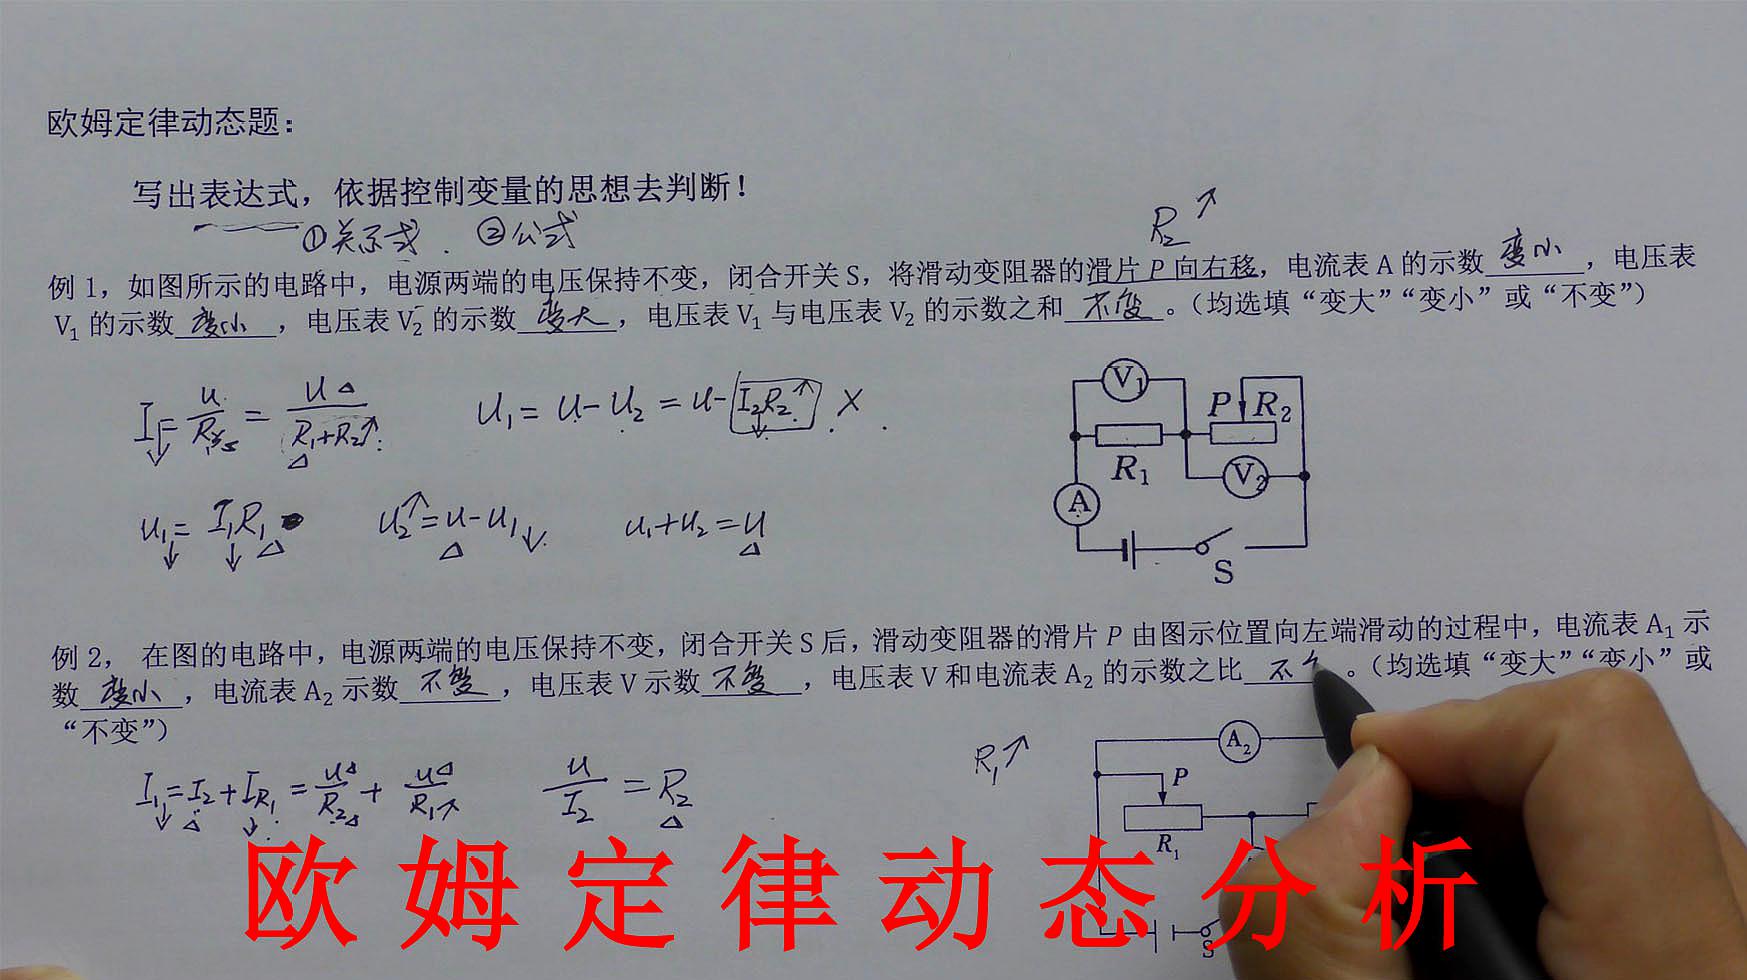 欧姆定律动态题：
写出表达式，依据控制变量的思想去判断！
①关系式. ②公式
R₂↑
例 1，如图所示的电路中，电源两端的电压保持不变，闭合开关 S，将滑动变阻器的滑片 P 向右移，电流表 A 的示数 变小 ，电压表
V₁ 的示数 变小 ，电压表 V₂ 的示数 变大 ，电压表 V₁ 与电压表 V₂ 的示数之和 不变 。（均选填“变大”“变小”或“不变”）
I↓=U/R=U△/(R₁△+R₂↑) U₁=U-U₂=U-I₂↓R₂↑ ×
U₁↓=I₁↓R₁△ U₂↑=U△-U₁↓ U₁+U₂=U△
V₁
P R₂
R₁
V₂
A
S
例 2， 在图的电路中，电源两端的电压保持不变，闭合开关 S 后，滑动变阻器的滑片 P 由图示位置向左端滑动的过程中，电流表 A₁ 示
数 变小 ，电流表 A₂ 示数 不变 ，电压表 V 示数 不变 ，电压表 V 和电流表 A₂ 的示数之比 不 。（均选填“变大”“变小”或
“不变”）
I₁↓=I₂△+I_R₁↓=U△/R₂△+U△/R₁↑ U/I₂=R₂△
R₁↑
A₂
P
R₁
S
欧姆定律动态分析